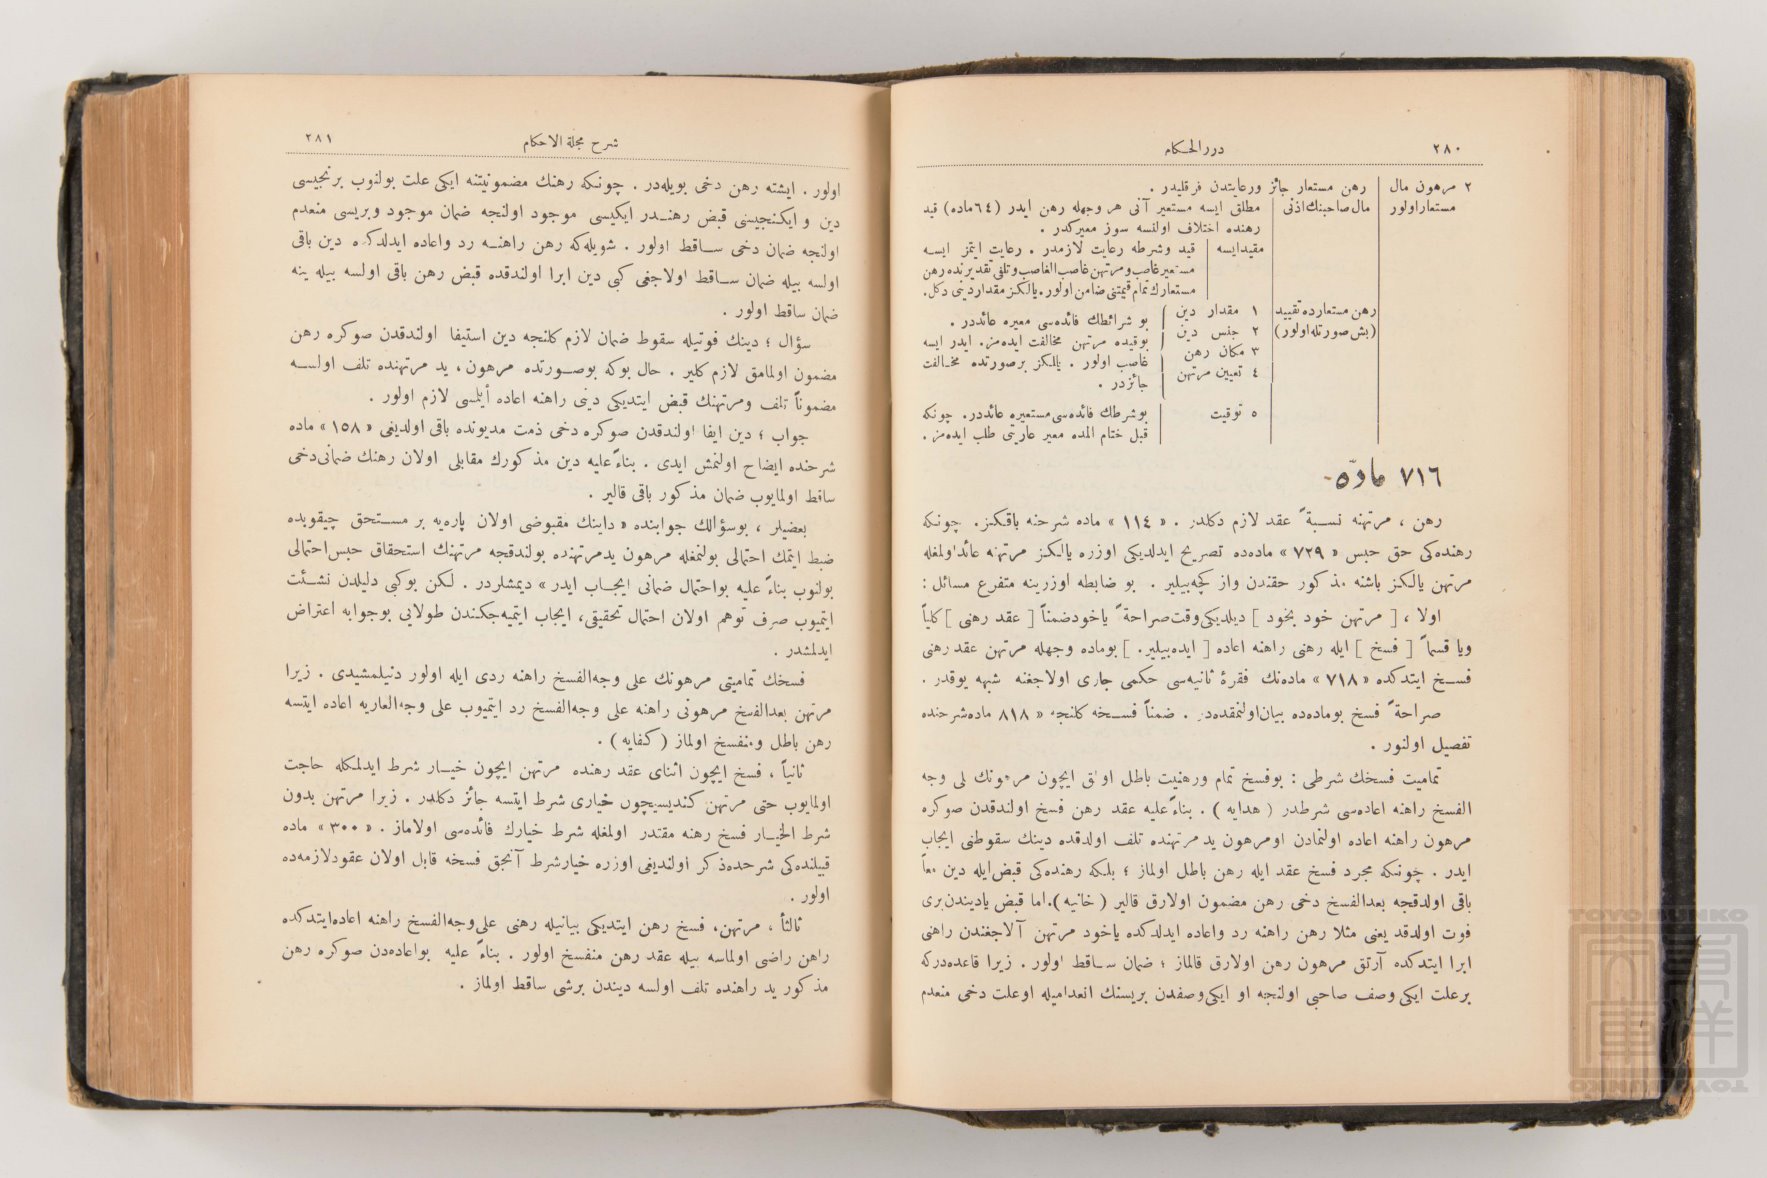 ٢٨٠
دررالحكام
٢ مرهون مال
مستعار اولور
رهن مستعار جائز ورعايتدن فرقليدر .
مال صاحبنك اذنى
مطلق ايسه مستعير آنى هر وجهله رهن ايدر (٦٤ماده) قيد
رهنده اختلاف اولنسه سوز معيركدر .
مقيد ايسه
قيد وشرطه رعايت لازمدر . رعايت ايتمز ايسه
مستعير غاصب ومرتهن غاصب الغاصب وتلفى تقديرنده رهن
مستعارك تمام قيمتنى ضامن اولور. يالكز مقدار دينى دكل.
رهن مستعارده تقييد
(بش صورتله اولور)
١ مقدار دين
٢ جنس دين
٣ مكان رهن
٤ تعيين مرتهن
بو شرائطك فائده‌سى معيره عائددر .
بوقيده مرتهن مخالفت ايده‌مز. ايدر ايسه
غاصب اولور . يالكز برصورتده مخالفت
جائزدر .
٥ توقيت
بوشرطك فائده‌سى مستعيره عائددر. چونكه
قبل ختام المده معير عاريتى طلب ايده‌مز .
٧١٦ ماده
رهن ، مرتهنه نسبةً عقد لازم دكلدر . « ١١٤ » ماده شرحنه باقكز. چونكه
رهنده‌كى حق حبس « ٧٢٩ » ماده‌ده تصريح ايدلديكى اوزره يالكز مرتهنه عائد اولمغله
مرتهن يالكز باشنه مذكور حقدن واز كچه‌بيلير . بو ضابطه اوزرينه متفرع مسائل :
اولا ، [ مرتهن خود بخود ] ديلديكى وقت صراحةً ياخود ضمناً [ عقد رهنى ] كلياً
ويا قسماً [ فسخ ] ايله رهنى راهنه اعاده [ ايده‌بيلير. ] بوماده وجهله مرتهن عقد رهنى
فسخ ايتدكده « ٧١٨ » ماده‌نك فقرۀ ثانيه‌سى حكمى جارى اولاجغنه شبهه يوقدر .
صراحةً فسخ بوماده‌ده بيان اولنمقده‌در . ضمناً فسخه كلنجه « ٨١٨ ماده شرحنده
تفصيل اولنور .
تماميت فسخك شرطى : بوفسخ تمام ورهنيت باطل اولمق ايچون مرهونك على وجه
الفسخ راهنه اعاده‌سى شرطدر ( هدايه ) . بناءً عليه عقد رهن فسخ اولندقدن صوكره
مرهون راهنه اعاده اولنمادن اومرهون يد مرتهنده تلف اولدقده دينك سقوطنى ايجاب
ايدر . چونكه مجرد فسخ عقد ايله رهن باطل اولماز ؛ بلكه رهنده‌كى قبض ايله دين معاً
باقى اولدقجه بعدالفسخ دخى رهن مضمون اولارق قالير ( خانيه ). اما قبض ياديندن برى
فوت اولدقد يعنى مثلا رهن راهنه رد واعاده ايدلدكده ياخود مرتهن آلاجغندن راهنى
ابرا ايتدكده آرتق مرهون رهن اولارق قالماز ؛ ضمان ساقط اولور . زيرا قاعده‌دركه
برعلت ايكى وصف صاحبى اولنجه او ايكى وصفدن بريسنك انعداميله اوعلت دخى منعدم
شرح مجلة الاحكام
٢٨١
اولور . ايشته رهن دخى بويله‌در . چونكه رهنك مضمونيتنه ايكى علت بولنوب برنجيسى
دين و ايكنجيسى قبض رهندر ايكيسى موجود اولنجه ضمان موجود وبريسى منعدم
اولنجه ضمان دخى ساقط اولور . شويله‌كه رهن راهنه رد واعاده ايدلدكده دين باقى
اولسه بيله ضمان ساقط اولاجغى كبى دين ابرا اولندقده قبض رهن باقى اولسه بيله ينه
ضمان ساقط اولور .
سؤال ؛ دينك فوتيله سقوط ضمان لازم كلنجه دين استيفا اولندقدن صوكره رهن
مضمون اولمامق لازم كلير . حال بوكه بوصورتده مرهون ، يد مرتهنده تلف اولسه
مضموناً تلف ومرتهنك قبض ايتديكى دينى راهنه اعاده ايلمسى لازم اولور .
جواب ؛ دين ايفا اولندقدن صوكره دخى ذمت مديونده باقى اولديغى « ١٥٨ » ماده
شرحنده ايضاح اولنمش ايدى . بناءً عليه دين مذكورك مقابلى اولان رهنك ضمانى دخى
ساقط اولمايوب ضمان مذكور باقى قالير .
بعضيلر ، بوسؤالك جوابنده « داينك مقبوضى اولان پاره‌يه بر مستحق چيقوبده
ضبط ايتمك احتمالى بولنمغله مرهون يد مرتهنده بولندقجه مرتهنك استحقاق حبس احتمالى
بولنوب بناءً عليه بواحتمال ضمانى ايجاب ايدر » ديمشلردر . لكن بوكبى دليلدن نشئت
ايتميوب صرف توهم اولان احتمال تحقيقى، ايجاب ايتميه‌جكندن طولايى بوجوابه اعتراض
ايدلمشدر .
فسخك تماميتى مرهونك على وجه‌الفسخ راهنه ردى ايله اولور دنيلمشيدى . زيرا
مرتهن بعدالفسخ مرهونى راهنه على وجه‌الفسخ رد ايتميوب على وجه‌العاريه اعاده ايتسه
رهن باطل ومنفسخ اولماز ( كفايه ) .
ثانياً ، فسخ ايچون اثناى عقد رهنده مرتهن ايچون خيار شرط ايدلمكله حاجت
اولمايوب حتى مرتهن كنديسيچون خيارى شرط ايتسه جائز دكلدر . زيرا مرتهن بدون
شرط الخيار فسخ رهنه مقتدر اولمغله شرط خيارك فائده‌سى اولاماز . « ٣٠٠ » ماده
قبيلنده‌كى شرحده‌ذكر اولنديغى اوزره خيار شرط آنجق فسخه قابل اولان عقود لازمه‌ده
اولور .
ثالثاً ، مرتهن، فسخ رهن ايتديكى بيانيله رهنى على وجه‌الفسخ راهنه اعاده ايتدكده
راهن راضى اولماسه بيله عقد رهن منفسخ اولور . بناءً عليه بواعاده‌دن صوكره رهن
مذكور يد راهنده تلف اولسه ديندن برشى ساقط اولماز .
TOYO BUNKO